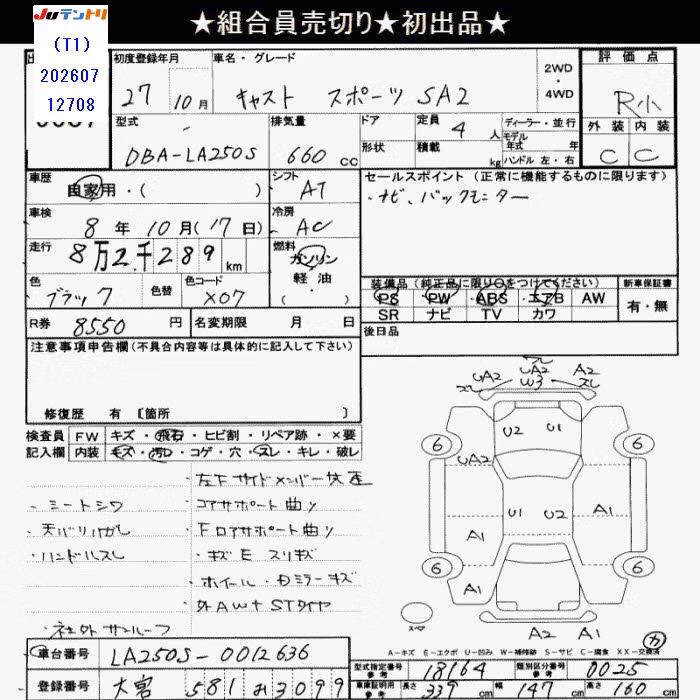 JUテントリ
★組合員売切り★初出品★
(T1)
202607
12708
初度登録年月
27 10月
車名・グレード
キャスト スポーツ SA2
2WD
・
4WD
評価点
R小
外装 内装
C C
型式
DBA-LA250S
排気量
660 cc
ドア
形状
定員 4 人
積載 kg
ディーラー・並行
モデル
年式 年
ハンドル 左・右
車歴
自家用・( )
シフト
AT
セールスポイント (正常に機能するものに限ります)
・ナビ、バックモニター
車検
8年10月(17日)
冷房
AC
走行
8万2千289 km
燃料
ガソリン
軽油
・( )
色
ブラック
色替
色コード
X07
装備品 (純正品に限り○をつけてください)
PS PW ABS エアB AW
SR ナビ TV カワ
新車保証書
有・無
R券 8550 円
名変期限 月 日
後日品
注意事項申告欄 (不具合内容等は具体的に記入して下さい)
修復歴 有 〔箇所 〕
検査員 FW キズ・飛石・ヒビ割・リペア跡・×要
記入欄 内装 キズ・汚れ・コゲ・穴・スレ・キレ・破レ
・左下サイドメンバー
・シートシワ
・コアサポート曲り
・天バリハガレ
・Fロアサポート曲り
・ハンドルスレ
・キズE スリキズ
・ホイール・Dミラーキズ
・外AW+STタイヤ
・社外サンルーフ
UA2
UA2
W3
A2
スレ
U2
U1
UA2
U1
U2
A1
A1
A1
A1
A2
A1
6
6
6
6
スペア
カ
A-キズ E-エクボ U-凹み W-補修跡 S-サビ C-腐食 XX-交換済
車台番号 LA250S-0012636
型式指定番号
参考
18164
類別区分番号
参考
0025
登録番号 大宮 581 3099
車庫証明用
参考
長さ 339 cm 幅 147 cm 高さ 160 cm